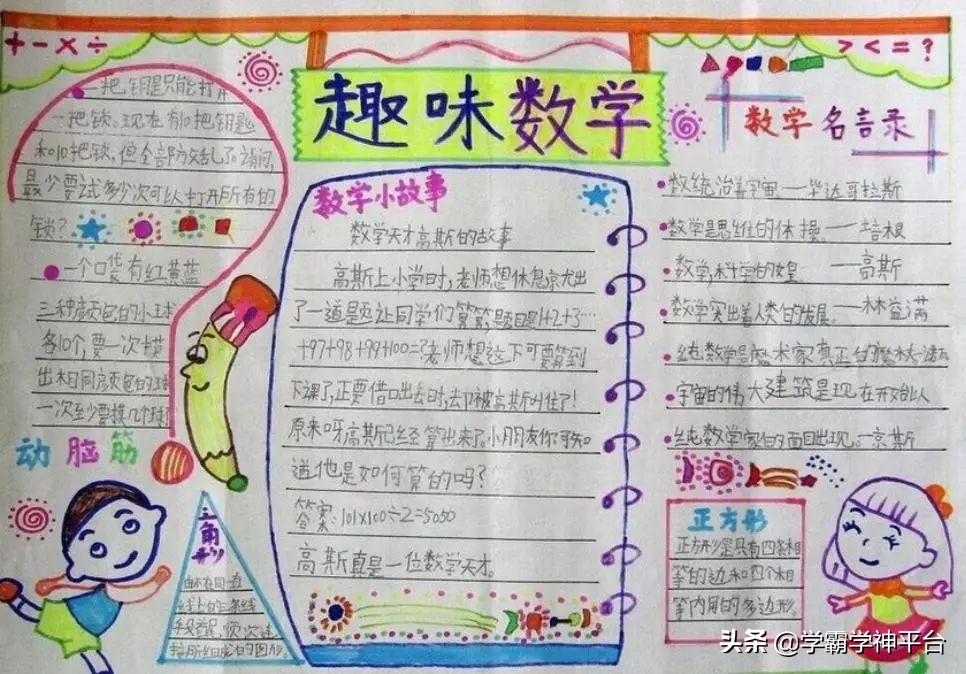 + - × ÷
> < = ?
趣味数学
一把钥匙只能打开
一把锁。现在有10把钥匙
和10把锁,但全部放乱了。请问,
最少要试多少次可以打开所有的
锁?
一个口袋有红黄蓝
三种颜色的小球
各10个,要一次摸
出相同颜色的球
一次至少要摸几个球
动脑筋
三角形
由不在同一
线上的三条线
形
数学小故事
数学天才高斯的故事
高斯上小学时,老师想休息就出
了一道题让同学们算算,题目是1+2+3…
+97+98+99+100=?老师想这下可要算到
下课了,正要借口出去时,却被高斯叫住了!
原来呀,高斯已经算出来了,小朋友你可知
道他是如何算的吗?
答案:101×100÷2=5050
高斯真是一位数学天才。
数学名言录
数统治着宇宙。——毕达哥拉斯
数学是思维的体操。——培根
数学,科学的女皇。——高斯
数学突出着人类的发展。——林益满
纯数学是魔术家真正的魔杖
宇宙的伟大建筑是现在开始以
纯数学家的面目出现。—京斯
正方形
正方形是只有四条相
等的边和四个相
等内角的多边形。
头条 @学霸学神平台